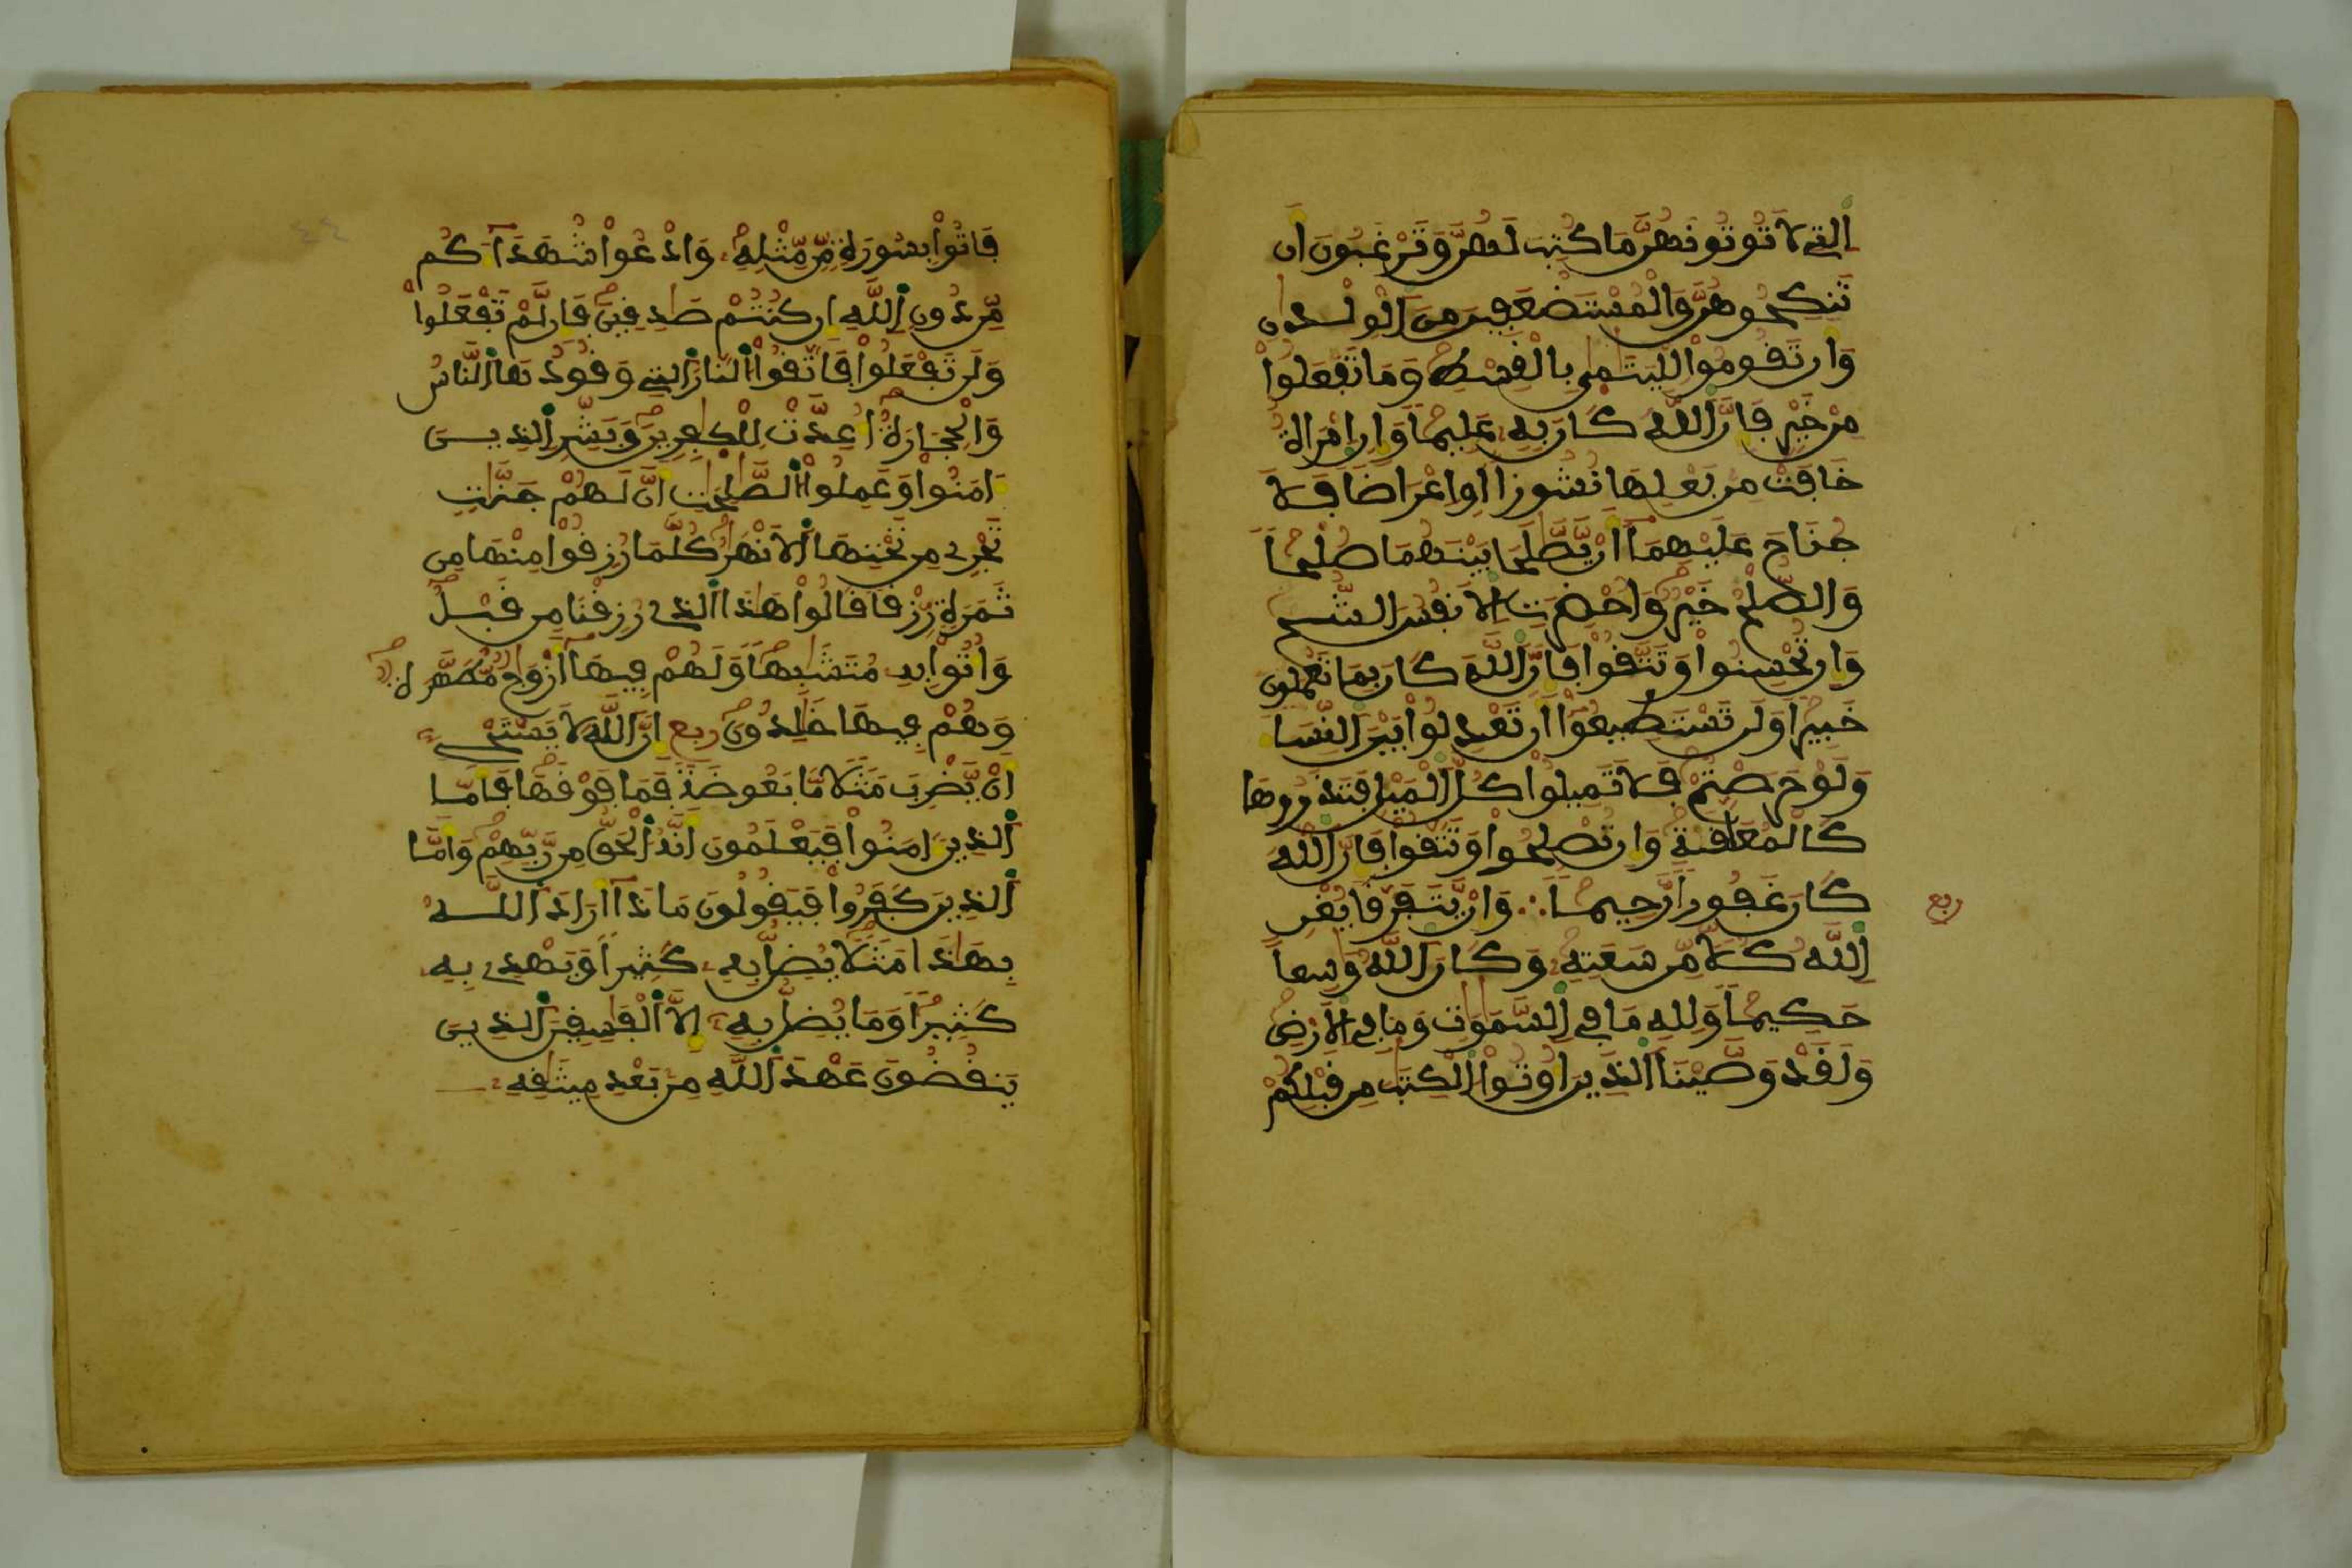 الٰتِي لَا تُوتُونَهُنَّ مَا كُتِبَ لَهُنَّ وَتَرْغَبُونَ أَن
تَنكِحُوهُنَّ وَالْمُسْتَضْعَفِينَ مِنَ الْوِلْدَٰنِ
وَأَن تَقُومُوا لِلْيَتَٰمَىٰ بِالْقِسْطِ وَمَا تَفْعَلُوا
مِنْ خَيْرٍ فَإِنَّ اللَّهَ كَانَ بِهِ عَلِيمًا وَإِنِ امْرَأَةٌ
خَافَتْ مِن بَعْلِهَا نُشُوزًا أَوِ اعْرَاضًا فَلَا
جُنَاحَ عَلَيْهِمَا أَنْ يَصَّٰلَحَا بَيْنَهُمَا صُلْحًا
وَالصُّلْحُ خَيْرٌ وَأُحْضِرَتِ الْأَنفُسُ الشُّحَّ
وَإِن تُحْسِنُوا وَتَتَّقُوا فَإِنَّ اللَّهَ كَانَ بِمَا تَعْمَلُونَ
خَبِيرًا وَلَن تَسْتَطِيعُوا أَن تَعْدِلُوا بَيْنَ النِّسَا
وَلَوْ حَرَصْتُمْ فَلَا تَمِيلُوا كُلَّ الْمَيْلِ فَتَذَرُوهَا
كَالْمُعَلَّقَةِ وَإِن تُصْلِحُوا وَتَتَّقُوا فَإِنَّ اللَّهَ
كَانَ غَفُورًا رَّحِيمًا ∴ وَإِنْ يَّتَفَرَّقَا يُغْنِ
ربع
اللَّهُ كُلًّا مِّن سَعَتِهِ وَكَانَ اللَّهُ وَٰسِعًا
حَكِيمًا وَلِلهِ مَا فِي السَّمَٰوَٰتِ وَمَا فِي الْأَرْضِ
وَلَقَدْ وَصَّيْنَا الَّذِينَ أُوتُوا الْكِتَٰبَ مِن قَبْلِكُمْ
٤٤
فَاتُوا بِسُورَةٍ مِّن مِّثْلِهِ وَادْعُوا شُهَدَآءَكُم
مِّن دُونِ اللَّهِ إِن كُنتُمْ صَٰدِقِينَ فَإِن لَّمْ تَفْعَلُوا
وَلَن تَفْعَلُوا فَاتَّقُوا النَّارَ الَّتِي وَقُودُهَا النَّاسُ
وَالْحِجَارَةُ أُعِدَّتْ لِلْكَٰفِرِينَ وَبَشِّرِ الَّذِينَ
ءَامَنُوا وَعَمِلُوا الصَّٰلِحَٰتِ أَنَّ لَهُمْ جَنَّٰتٍ
تَجْرِي مِن تَحْتِهَا الْأَنْهَٰرُ كُلَّمَا رُزِقُوا مِنْهَا مِن
ثَمَرَةٍ رِّزْقًا قَالُوا هَٰذَا الَّذِي رُزِقْنَا مِن قَبْلُ
وَأُتُوا بِهِ مُتَشَٰبِهًا وَلَهُمْ فِيهَا أَزْوَٰجٌ مُّطَهَّرَةٌ
وَهُمْ فِيهَا خَٰلِدُونَ ربع إِنَّ اللَّهَ لَا يَسْتَحْيِ
أَنْ يَّضْرِبَ مَثَلًا مَّا بَعُوضَةً فَمَا فَوْقَهَا فَأَمَّا
الَّذِينَ ءَامَنُوا فَيَعْلَمُونَ أَنَّهُ الْحَقُّ مِن رَّبِّهِمْ وَأَمَّا
الَّذِينَ كَفَرُوا فَيَقُولُونَ مَاذَا أَرَادَ اللَّهُ
بِهَٰذَا مَثَلًا يُضِلُّ بِهِ كَثِيرًا وَيَهْدِي بِهِ
كَثِيرًا وَمَا يُضِلُّ بِهِ إِلَّا الْفَٰسِقِينَ الَّذِينَ
يَنقُضُونَ عَهْدَ اللَّهِ مِن بَعْدِ مِيثَٰقِهِ